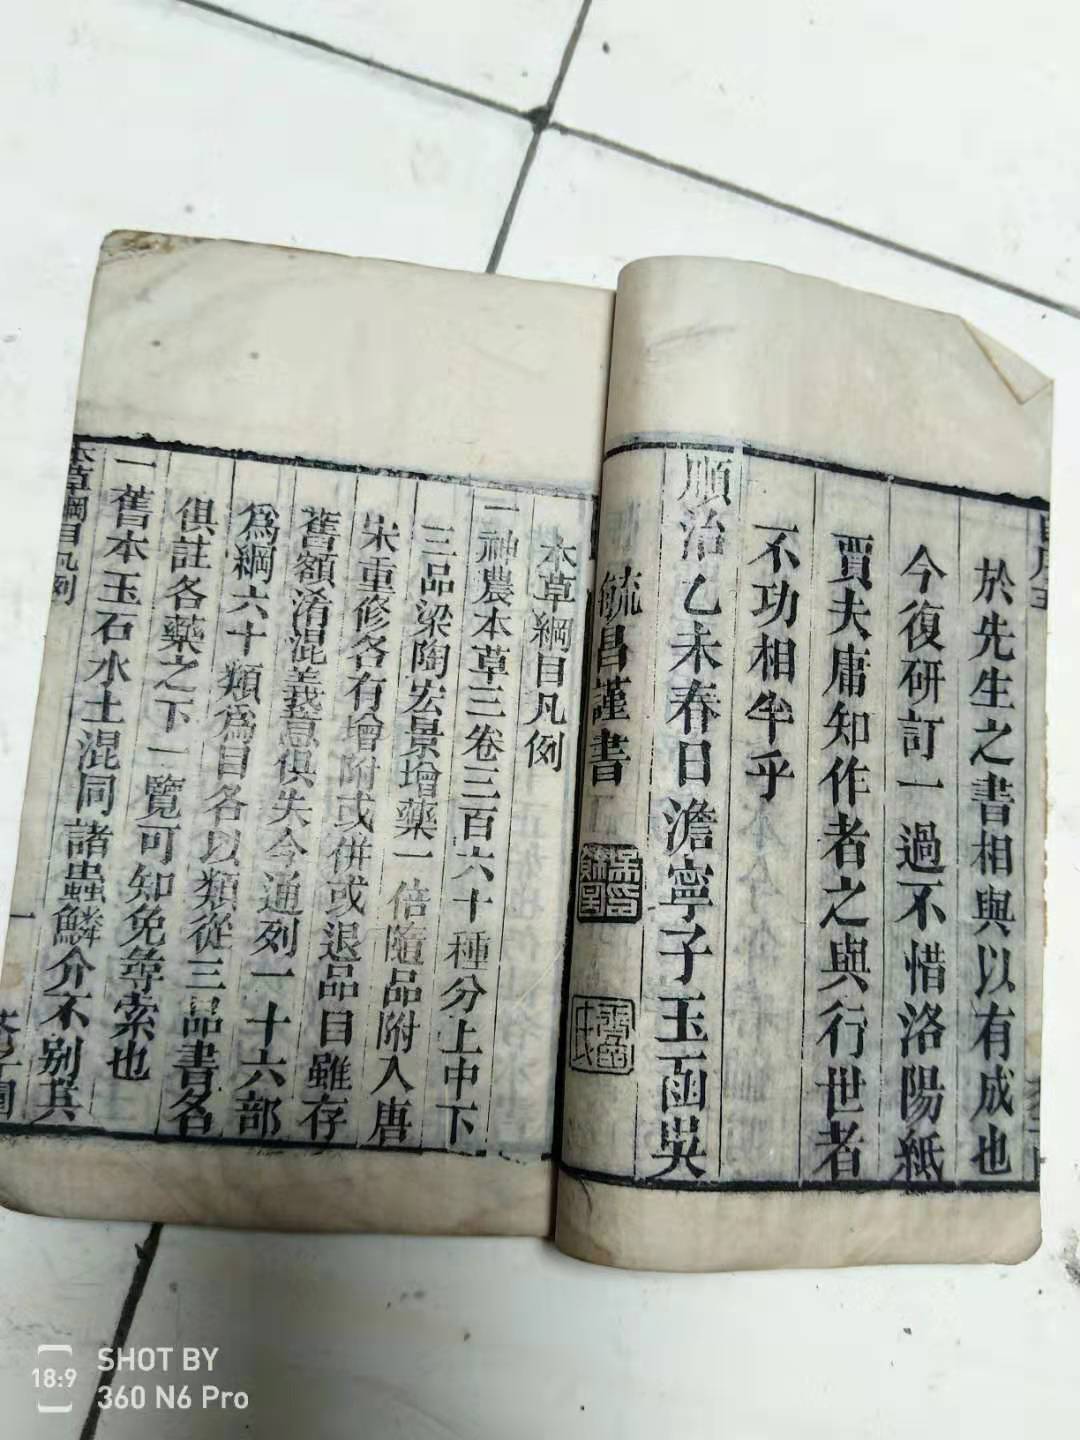 於先生之書相與以有成也
今復研訂一過不惜洛陽紙
賈夫庸知作者之與行世者
不功相半乎
順治乙未春日澹寧子玉函吳
毓昌謹書
本草綱目凡例
一神農本草三卷三百六十種分上中下
三品梁陶宏景增藥一倍隨品附入唐
宋重修各有增附或併或退品目雖存
舊額淆混義意俱失今通列一十六部
為綱六十類為目各以類從三品書名
俱註各藥之下一覽可知免尋索也
一舊本玉石水土混同諸蟲鱗介不別其
本草綱目凡例
一
SHOT BY
360 N6 Pro
18:9